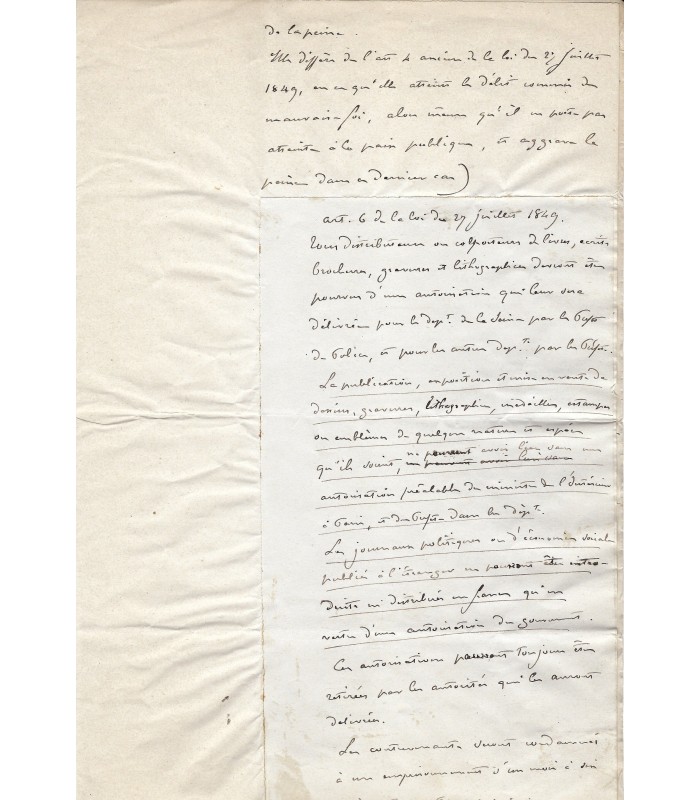 de la peine.
Elle diffère de l'art 4 ancien de la loi du 27 juillet
1849, en ce qu'elle atteint le délit commis de
mauvaise foi, alors même qu'il ne porte pas
atteinte à la paix publique, et aggrave la
peine dans ce dernier cas)
art. 6 de la loi du 27 juillet 1849.
Tous distributeurs ou colporteurs de livres, écrits
brochures, gravures et lithographies devront être
pourvus d'une autorisation qui leur sera
délivrée pour le dépt. de la Seine par le Préfet
de Police, et pour les autres dépts. par les Préfets.
La publication, exposition et mise en vente de
dessins, gravures, lithographies, médailles, estampes
ou emblèmes de quelque nature et espèce
qu'ils soient, ne pourront avoir lieu sans une
autorisation préalable du ministre de l'Intérieur
à Paris, et des Préfets dans les dépts.
Les journaux politiques ou d'économie sociale
publiés à l'étranger ne pourront être intro-
duits ni distribués en france qu'en
vertu d'une autorisation du gouvernt.
Ces autorisations pourront toujours être
retirées par les autorités qui les auront
délivrées.
Les contrevenants seront condamnés
à un emprisonnement d'un mois à six